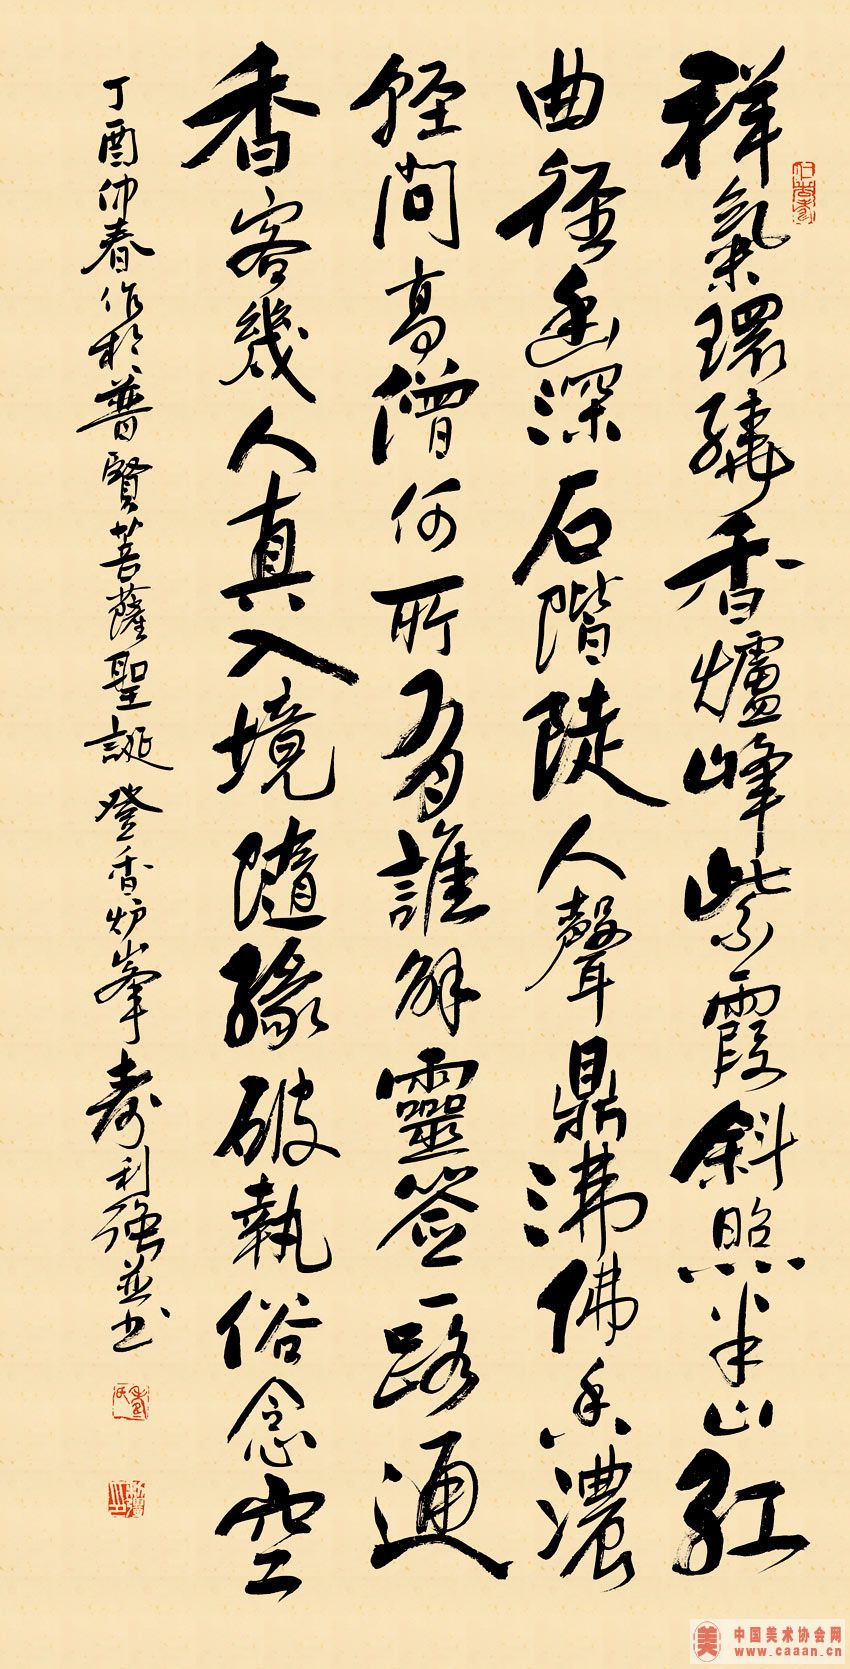 祥氣環繞香爐峰紫霞斜照半山紅
曲徑幽深石階陡人聲鼎沸佛香濃
輕問高僧何所有誰解靈签一路通
香客幾人真入境隨緣破執俗念空
丁酉仲春作於普賢菩薩聖誕登香炉峯寿利强並书
中国美术协会网
www.caaan.cn